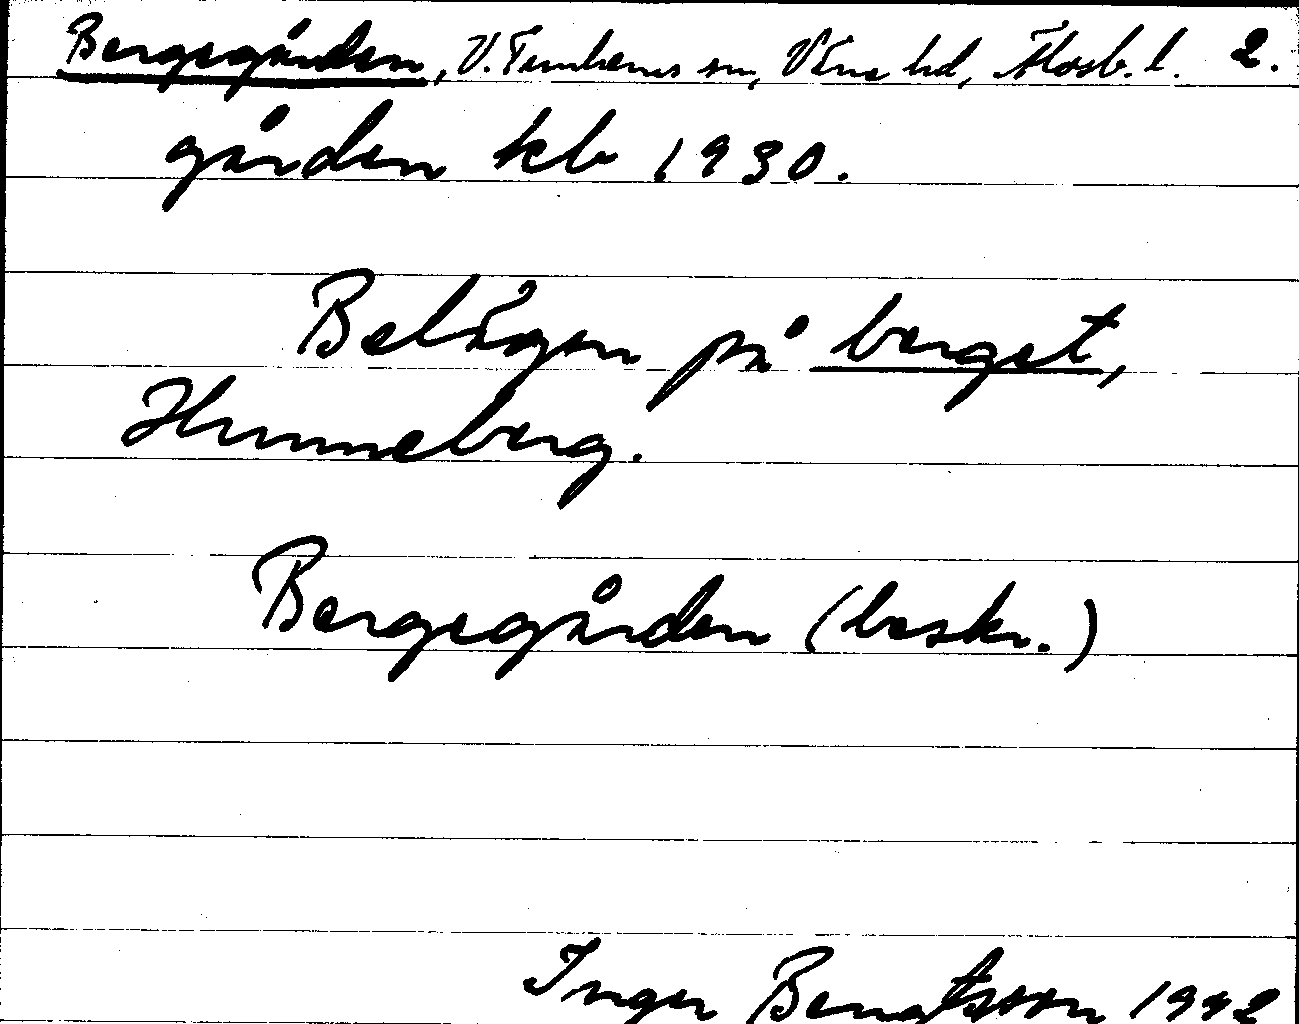 Bergegården, V. Tunhems sn, Väne hd, Älvsb. l. 2.
gården kb 1930.
Belägen på berget,
Hunneberg.
Bergegården (beskr.)
Inger Bengtsson 1942